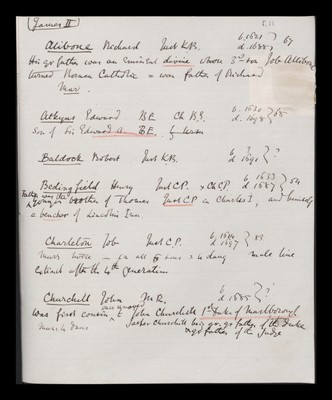 (James II)
E11
Alibone Richard Just K.B. b. 1621 d. 1688 } 67
His gr father was an eminent divine whose 3rd son Job Allibone
turned Roman Catholic & was father of Richard
Marr.
Atkyns Edward B.E. Ch B.E. b. 1630 d. 1698 } 68
Son of Sir Edward A. B.E.
Baldock Robert Just K.B. b. d. 1691 } ?
Bedingfield Henry Just C.P. & Ch C.P. b. 1633 d. 1687 } 54
Father was the
young brother of Thomas Just C.P. in Charles I, and himself
a bencher of Lincolns Inn.
Charleton Job Just C.P. b. 1614 d. 1697 } 83
Marr twice — in all 5 sons & 4 daug male line
extinct after the 4th generation
Churchill John M.R. b. d. 1685 } ?
was first cousin once removed to John Churchill 1st Duke of Marlborough
Jasper Churchill being gr. gr father of the Duke
Marr, 4 daus & gr father of the Judge